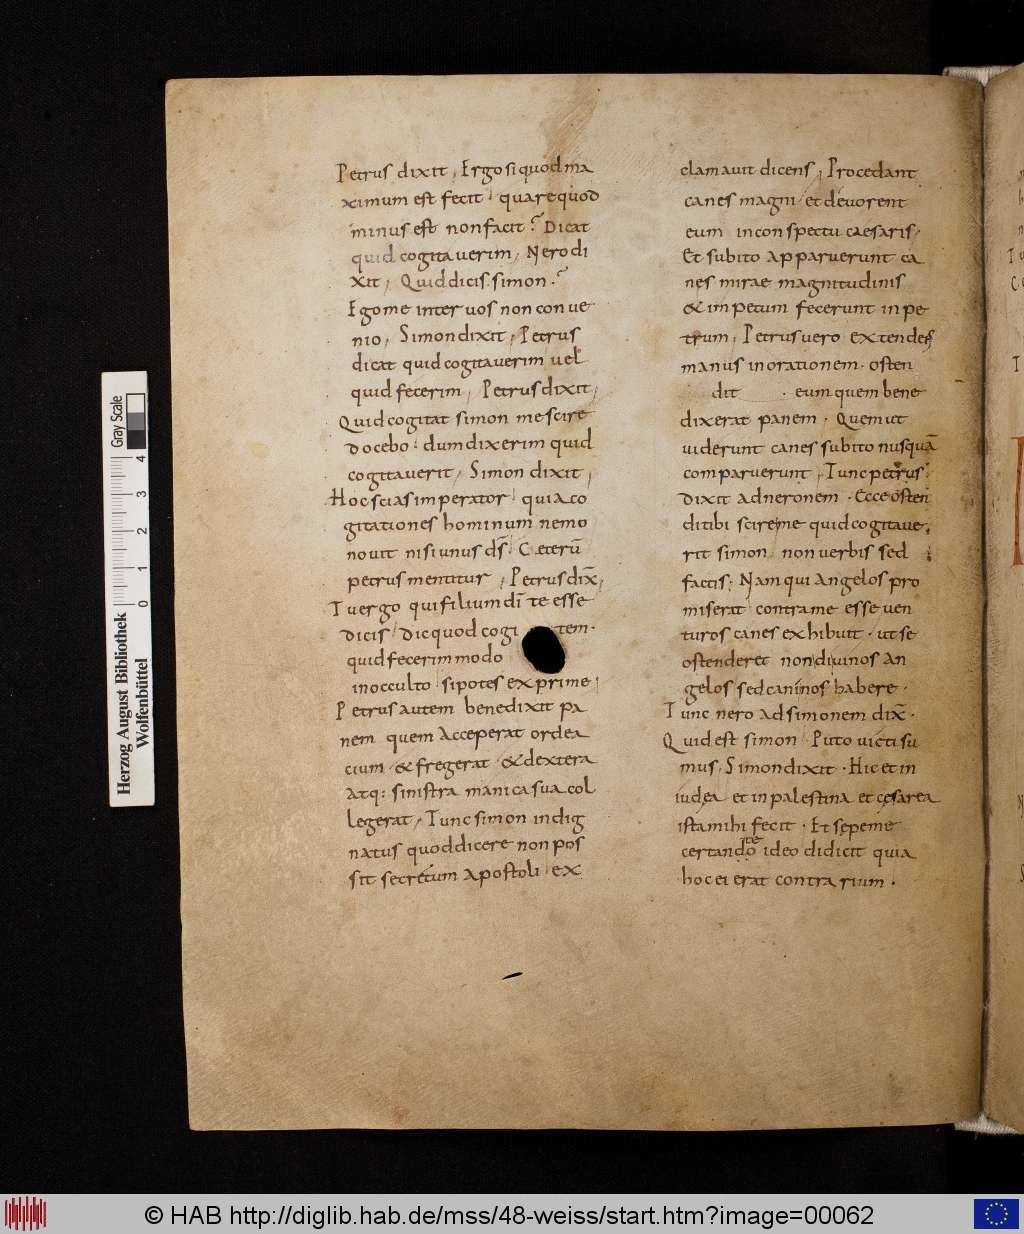 Petrus dixit, Ergo si quod ma
ximum est fecit quare quod
minus est non facit? Dicat
quid cogitaverim, Nero di
xit, Quid dicis simon.?
Ego me inter vos non conve
nio, Simon dixit, Petrus
dicat quid cogitaverim uel
quid fecerim, Petrus dixit,
Quid cogitat simon me scire
docebo dum dixerim quid
cogitaverit, Simon dixit,
Hoc scias imperator quia co
gitationes hominum nemo
novit nisi unus ds̄ Cęterū
petrus mentitur, Petrus dix̄,
Tu ergo qui filium dī te esse
dicis dic quod cogi tem.
quid fecerim modo
in occulto si potes exprime
Petrus autem benedixit pa
nem quem acceperat ordea
cium & fregerat & dextera
atq: sinistra manica sua col
legerat, Tunc simon indig
natus quod dicere non pos
sit secretum apostoli ex
clamavit dicens, Procedant
canes magni et devorent
eum in conspectu caesaris.
Et subito apparverunt ca
nes mirae magnitudinis
& impetum fecerunt in pe
trum, Petrus vero extendens
manus in orationem. osten
dit . eum quem bene
dixerat panem. Quem ut
viderunt canes subito nusquā
comparverunt, Tunc petrus
dixit ad neronem. Ecce osten
di tibi scire me quid cogitave
rit simon non verbis sed
factis: Nam qui angelos pro
miserat contra me esse ven
turos canes exhibuit. ut se
ostenderet non divinos an
gelos sed caninos habere.
Tunc nero ad simonem dix̄.
Quid est simon Puto victi su
mus, Simon dixit. Hic et in
iudęa et in palestina et cęsarea
ista mihi fecit. Et sępe me
certando te ideo didicit quia
hoc ei erat contrarium.
Gray Scale
4 3 2 1 0
Herzog August Bibliothek
Wolfenbüttel
© HAB http://diglib.hab.de/mss/48-weiss/start.htm?image=00062